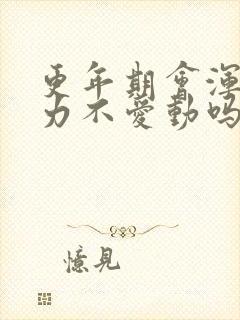 更年期會渾
力不愛動嗎
憶見